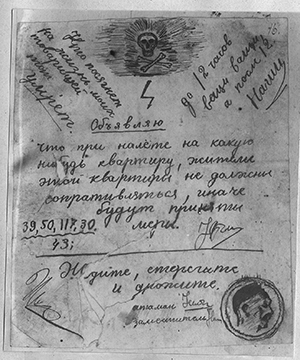 Кто посягнет
на жизнь моих
товарищей
тот
умрет.
до 12 часов
ваши вами
а после 12
наши
Объявляю
что при налете на какую
нибудь квартиру, жители
этой квартиры не должны
сопративляться, иначе
будут приняты
меры.
39,50,117,30
43;
Ждите, стерегите
и дрожите.
атаман
заместитель